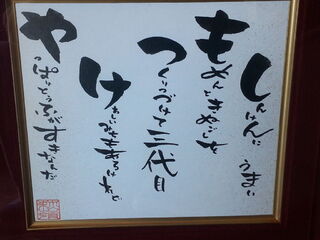 しんけんに うまい
もめんときぬごしを
つくりつづけて三代目
けわしいみちもあるけれど
やっぱりとうふがすきなんだ